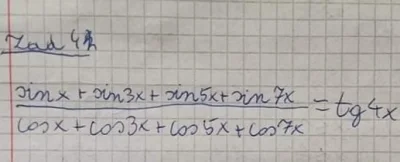 Zad 4h
sinx + sin3x + sin5x + sin7x
cosx + cos3x + cos5x + cos7x = tg4x